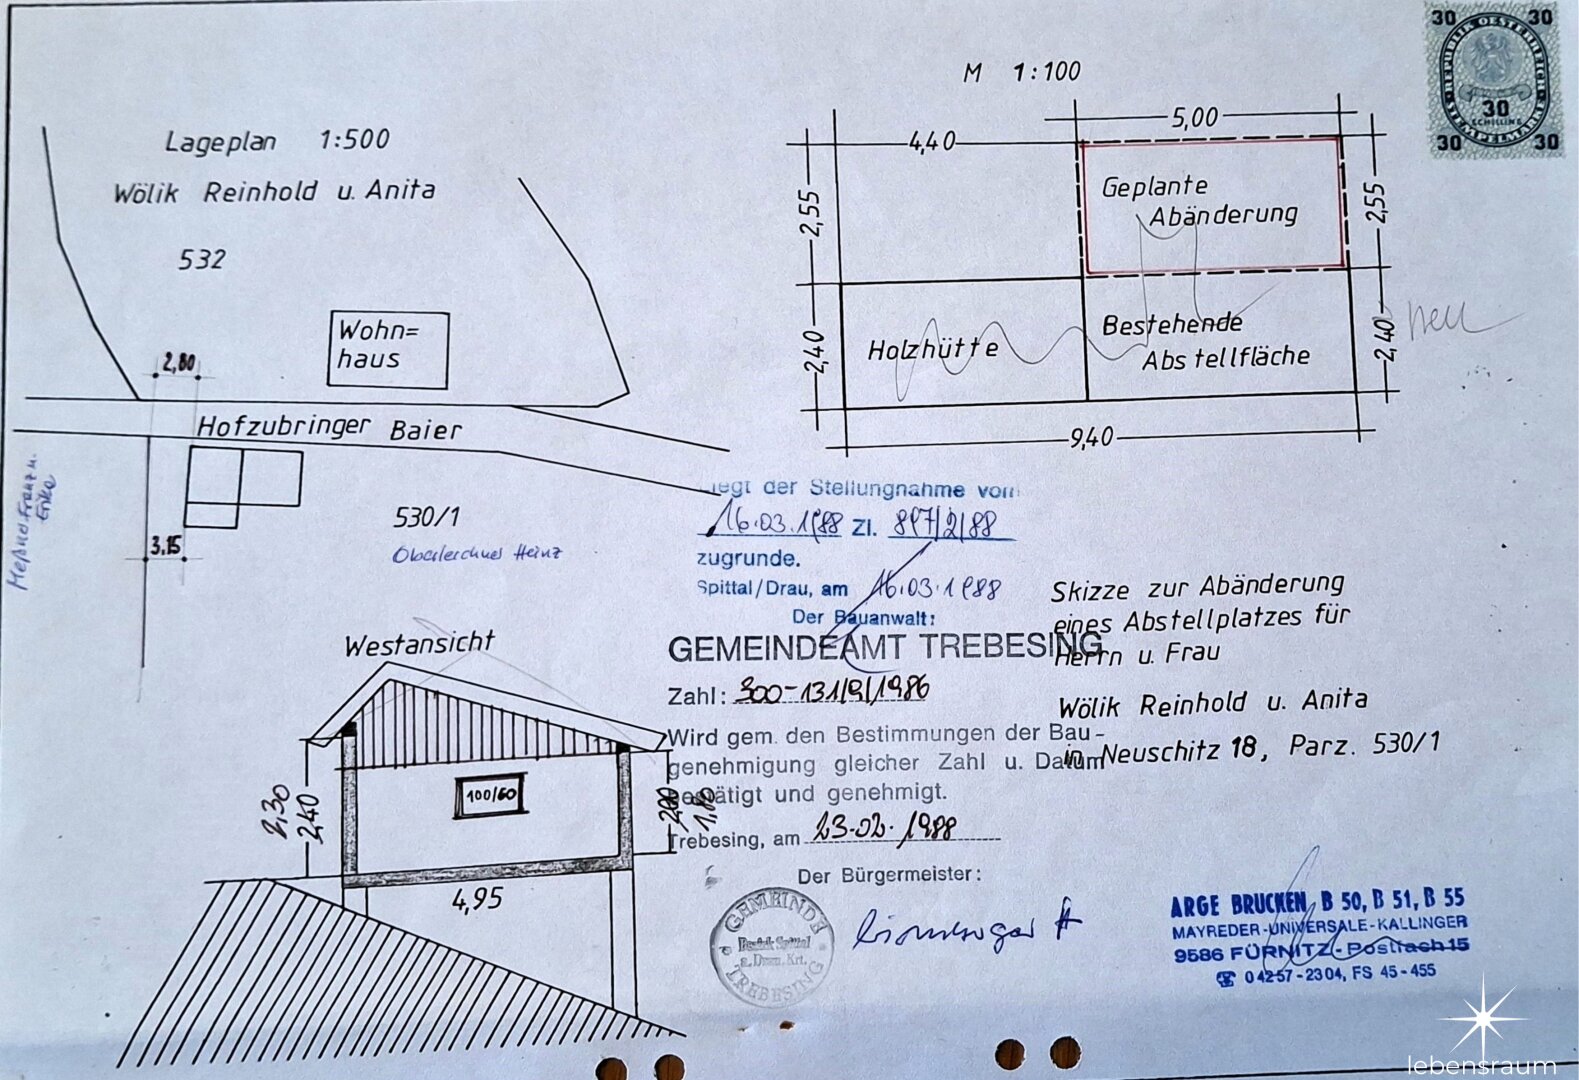 Lageplan 1:500
Wölik Reinhold u. Anita
532
Wohn=
haus
2,80
Hofzubringer Baier
3,15
530/1
Oberlerchner Heinz
Meßner Franz u.
M 1:100
4,40
5,00
2,55
Geplante
Abänderung
2,55
2,40
Holzhütte
Bestehende
Abstellfläche
2,40
neu
9,40
30 30
REPUBLIK OESTERREICH
30
SCHILLING
STEMPELMARKE
30 30
legt der Stellungnahme vom
16.03.1988 Zl. 897/2/88
zugrunde.
Spittal/Drau, am 16.03.1988
Der Bauanwalt:
GEMEINDEAMT TREBESING
Zahl: 300-131/9/1986
Wird gem. den Bestimmungen der Bau-
genehmigung gleicher Zahl u. Datum
bestätigt und genehmigt.
Trebesing, am 23.02.1988
Der Bürgermeister:
GEMEINDE
Bezirk Spittal
a. Drau, Krt.
TREBESING
Skizze zur Abänderung
eines Abstellplatzes für
Herrn u. Frau
Wölik Reinhold u. Anita
in Neuschitz 18, Parz. 530/1
Westansicht
2,30
2,40
100/60
2,00
1,80
4,95
ARGE BRUCKEN B 50, B 51, B 55
MAYREDER-UNIVERSALE-KALLINGER
9586 FÜRNITZ-Postfach 15
☎ 04257-2304, FS 45-455
lebensraum